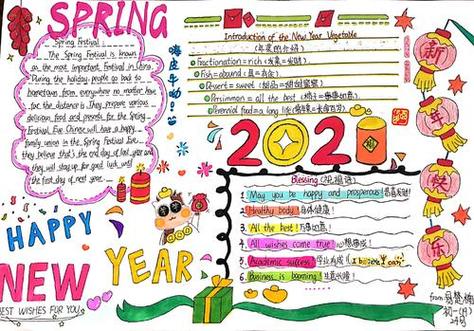 SPRING
Spring Festival
The Spring Festival is known
as the most important Festival in China
During the holiday, people go back to
hometown from everywhere no matter how
far the distance is. They prepare various
delicious food and presents for the Spring
Festival. Eve Chinese will have a happy
family union in the Spring Festival Eve
they believe that's the end day of last year and
they will stay up for good luck
the first day of next year
Introduction of the New Year Vegetable
(年菜的介绍)
Fractionation=rich (发菜=发财)
Fish=abound
Desert=sweet (甜品=甜甜蜜蜜)
Persimmon=all the best
Perennial food=a long life
2021
新
年
快
乐
HAPPY
NEW
YEAR
BEST WISHES FOR YOU
Blessing (祝福语)
1. May you be happy and prosperous! 恭喜发财!
2. Healthy body! 身体健康!
3. All the best! 万事如意!
4. All wishes come true! 心想事成!
5. Academic success 学业有成
6. Business is booming! 生意兴隆!
from: